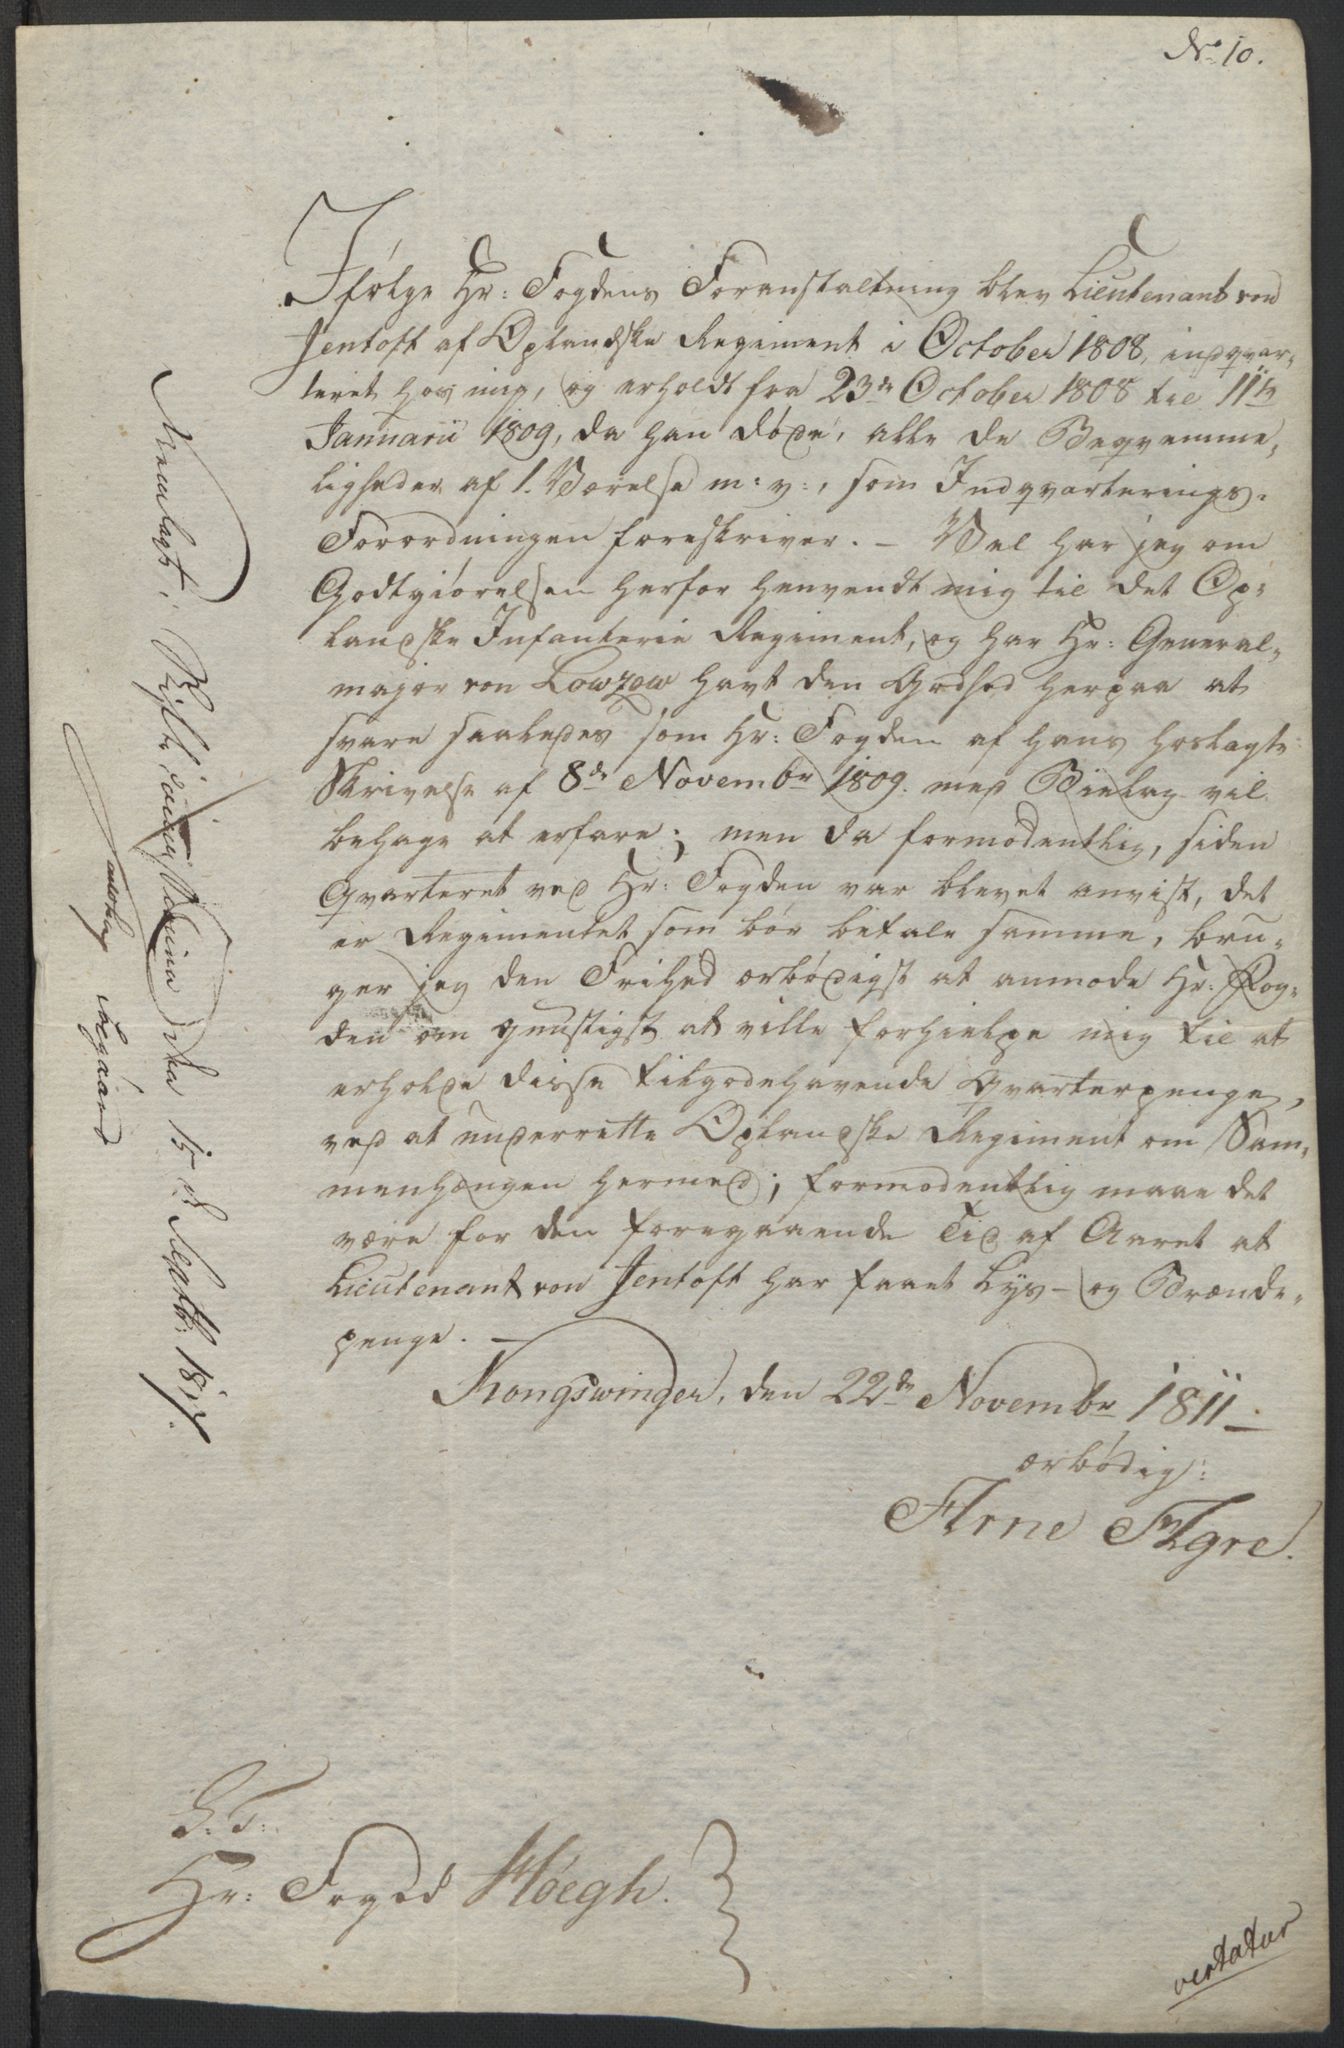 No 10.
Ifølge Hr: Fogdens Foranstaltning blev Lieutenant von
Jentoft af Oplandske Regiment i October 1808, indqvar-
teret hos mig, og erholdt fra 23de October 1808 til 11te
Januarii 1809, da han døde, alle de Beqvemme-
ligheder af 1. Værelse m: v:, som Indqvarterings-
Forordningen foreskriver. – Vel har jeg om
Godtgiørelsen herfor henvendt mig til det Op-
landske Infanterie Regiment, og har Hr: General-
major von Lowzow havt den Godhed herpaa at
svare saaledes som Hr: Fogden af hans hoslagte
Skrivelse af 8de Novembr 1809. med Bielag vil
behage at erfare; men da formodentlig, siden
Qvarteret ved Hr: Fogden var blevet anvist, det
er Regimentet som bør betale samme, bru-
ger jeg den Frihed ærbødigst at anmode Hr: Fog-
den om gunstigst at ville forhielpe mig til at
erholde disse tilgodehavende Qvarterpenge,
ved at underrette Oplandske Regiment om Sam-
menhængen hermed; formodentlig maae det
være for den foregaaende Tid af Aaret at
Lieutenant von Jentoft har faaet Lys- og Brænde-
penge. –
Kongswinger, den 22de Novembr 1811
ærbødig:
Arne Agre.
S: T:
Hr: Foged Høegh.
vertatur
Fremlagt i den 15 d 1817.